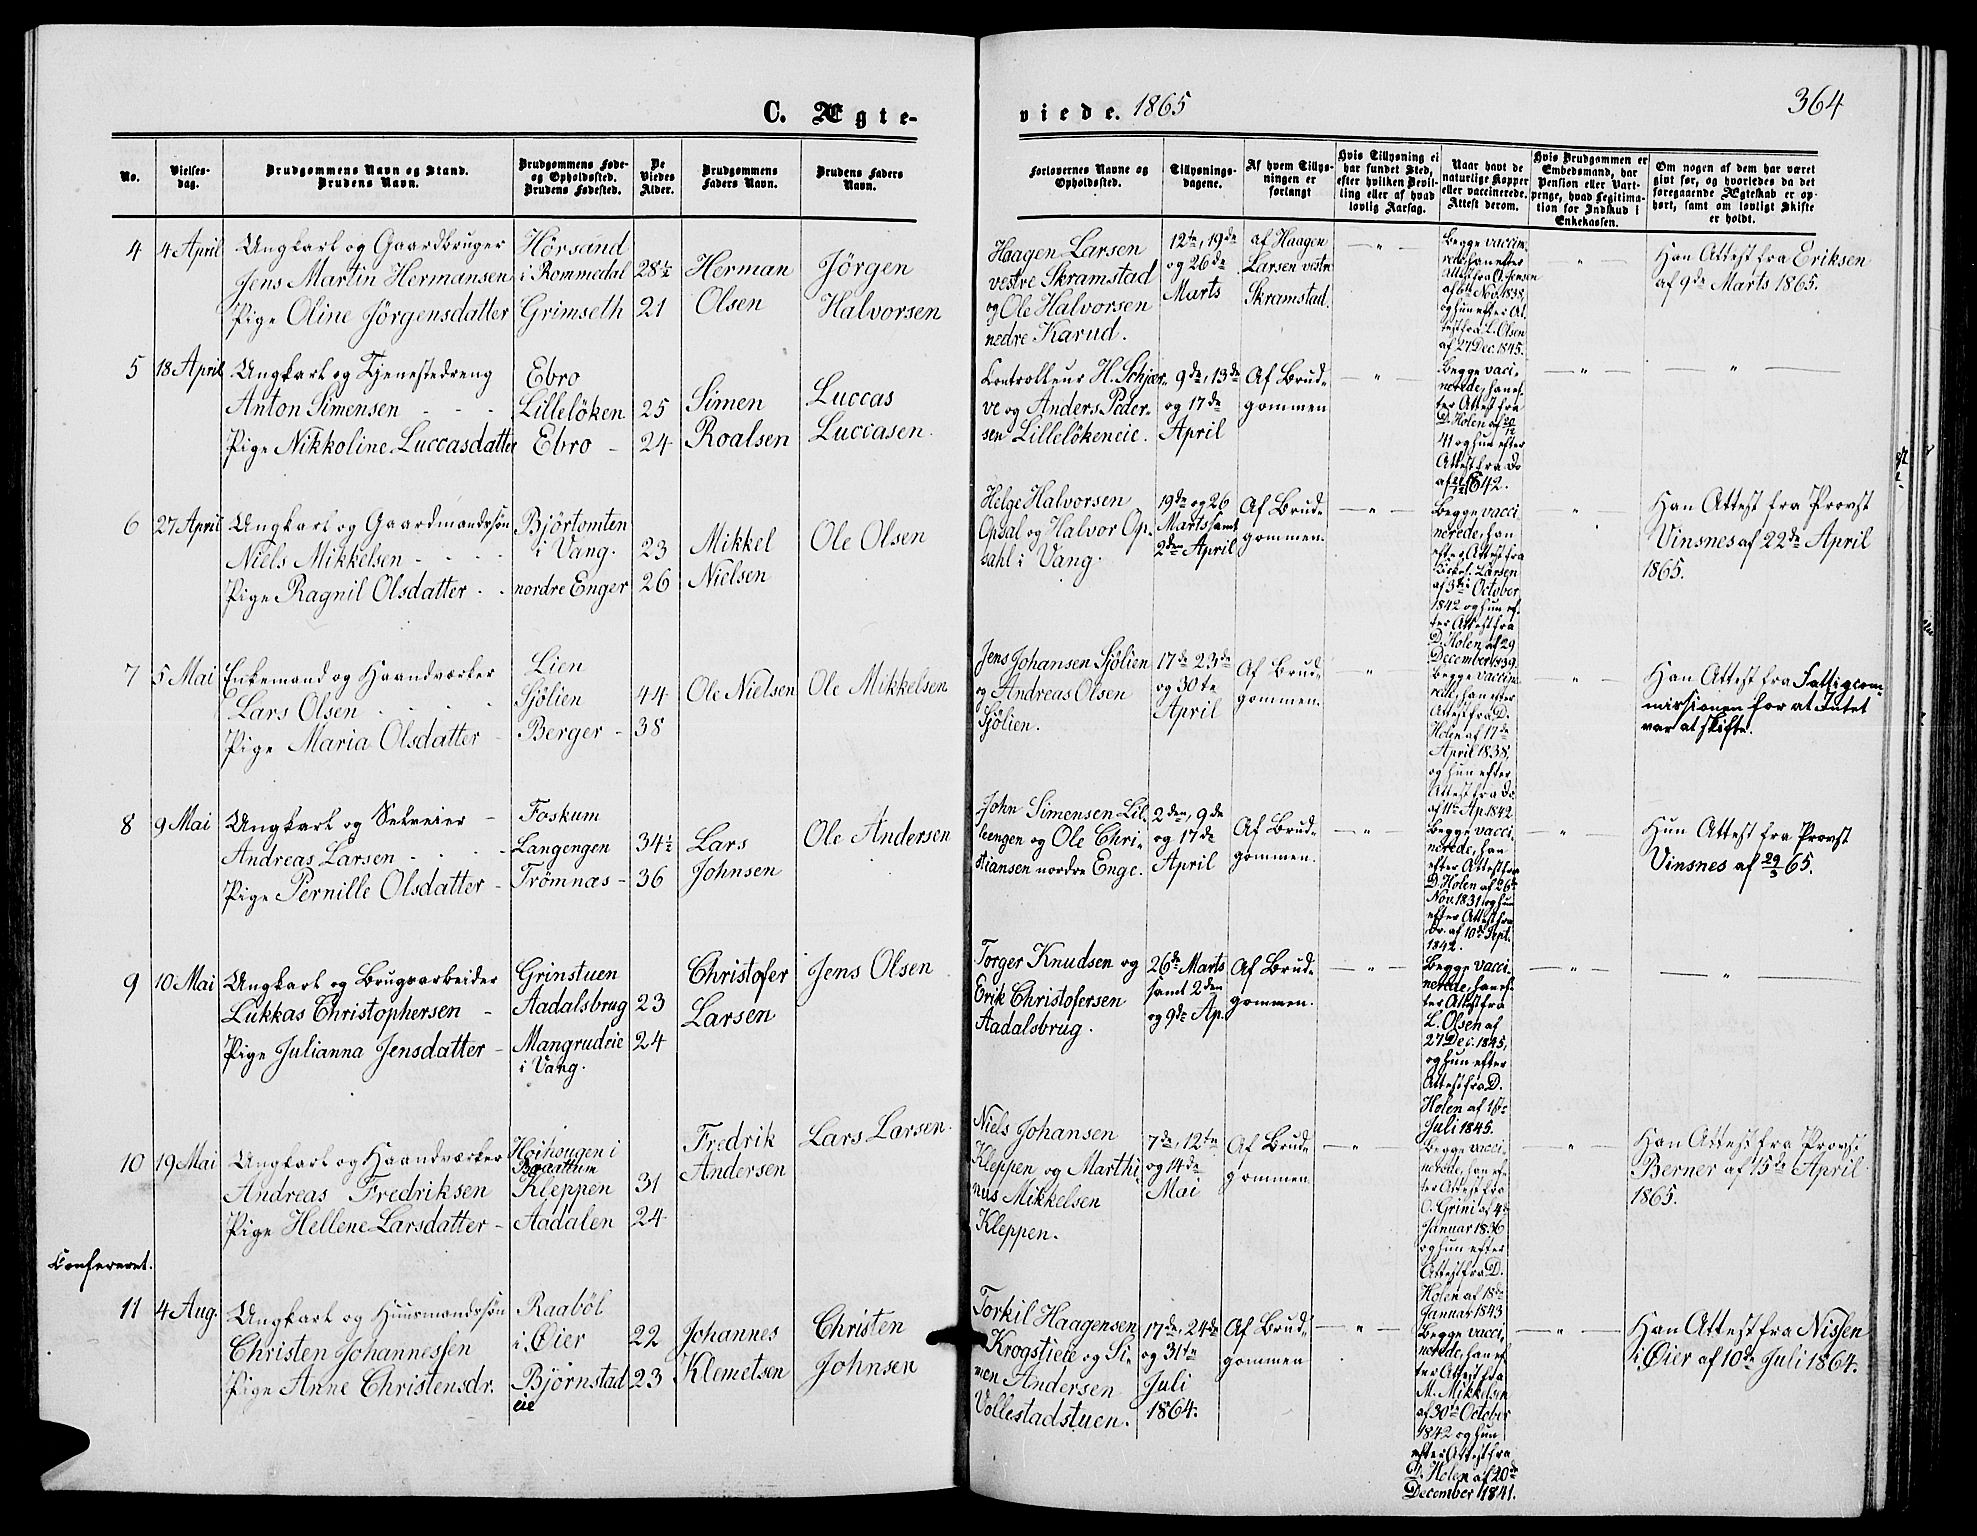 C. Ægte-
viede. 1865
364
No.
Vielses-
dag.
Brudgommens Navn og Stand.
Brudens Navn.
Brudgommens Føde-
og Opholdssted.
Brudens Fødested.
De
Viedes
Alder.
Brudgommens
Faders Navn.
Brudens Faders
Navn.
Forlovernes Navne og
Opholdssted.
Tillysnings-
dagene.
Af hvem Tillys-
ningen er
forlangt
Hvis Tillysning ei
har fundet Sted,
efter hvilken Bevil-
ling eller af hvad
lovlig Aarsag.
Naar havt de
naturlige Kopper
eller vaccinerede.
Attest derom.
Hvis Brudgommen er
Embedsmand, har
Pension eller Vart-
penge, hvad Legitima-
tion for Indskud i
Enkekassen.
Om nogen af dem har været
gift før, og hvorledes da det
foregaaende Ægteskab er op-
hørt, samt om lovligt Skifte
er holdt.
4
4 April
Ungkarl og Gaardbruger
Jens Martin Hermansen
Pige Oline Jörgensdatter
Hörsand
i Rommedal
Grimseth
28½
21
Herman
Olsen
Jörgen
Halvorsen
Haagen Larsen
vestre Skramstad
og Ole Halvorsen
nedre Karud.
12te, 19de
og 26de
Marts
af Haagen
Larsen vestre
Skramstad.
Begge vaccine-
rede, han efter
Attest fra O. Jensen
af 6te Nov. 1838,
og hun efter At-
test fra L. Olsen
af 27 Dec. 1845.
Han Attest fra Eriksen
af 9de Marts 1865.
5
18 April
Ungkarl og Tjenestedreng
Anton Simensen
Pige Nikkoline Luccasdatter
Ebro
Lillelöken
Ebro
25
24
Simen
Roalsen
Luccas
Luccasen.
Controlleur H. Schjær-
ve og Anders Peder-
sen Lillelökeneie.
9de, 13de
og 17de
April
Af Brud-
gommen
Begge vaci-
nerede, han ef-
ter Attest fra
D. Holen af 20/12
41 og hun efter
Attest fra Do
1842.
6
27 April
Ungkarl og Gaardmandssön
Niels Mikkelsen
Pige Ragnil Olsdatter
Björtomten
i Vang.
nordre Enger
23
26
Mikkel
Nielsen
Ole Olsen
Helge Halvorsen
Opsal og Halvor Op-
sahl i Vang.
19de og 26
Marts samt
2den April
Af Brud-
gommen.
Begge vacci
nerede, han
efter Attest fra
Kirkes. Larsen
af 3die October
1842 og hun ef-
ter Attest fra
D. Holen af 29
December 1839.
Han Attest fra Provst
Vinsnes af 22de April
1865.
7
5 Mai
Enkemand og Haandværker
Lars Olsen
Pige Maria Olsdatter
Lien
Sjölien
Berger
44
38
Ole Nielsen
Ole Mikkelsen
Jens Johansen Sjölien
og Andreas Olsen
Sjölien.
17de 23de
og 30te
April
Af Brud-
gommen.
Begge vaccine-
rede, han efter
Attest fra D.
Holen af 17de
April 1838,
og hun efter
Attest fra Do
af 11te Ap. 1842
Han Attest fra Fattigcom-
missionen for at Intet
var at skifte.
8
9 Mai
Ungkarl og Selveier
Andreas Larsen
Pige Pernille Olsdatter
Foskum
Langengen
Trömnæs
34½
36
Lars
Johnsen
Ole Andersen
John Simensen Lil-
leengen og Ole Chri-
stiansen nordre Enge.
2den, 9de
og 17de
April
Af Brud-
gommen.
Begge vacci-
nerede, han
efter Attest fra
D. Holen af 26de
Nov. 1831 og hun
efter Attest fra
Do. af 10de Sept.
1842.
Hun Attest fra Provst
Vinsnes af 29/3 65.
9
10 Mai
Ungkarl og Brugsarbeider
Lukkas Christophersen
Pige Julianna Jensdatter
Grinstuen
Aadalsbrug
Mangrudeie
i Vang.
23
24
Christofer
Larsen
Jens Olsen
Torger Knudsen og
Erik Christofersen
Aadalsbrug.
26de Marts
samt 2den
og 9de Ap.
Af Brud-
gommen.
Begge vacci-
nerede, han ef-
ter Attest fra
L. Olsen af
27 Dec. 1845.
og hun efter
Attest fra D.
Holen af 16de
Juli 1845.
10
19 Mai
Ungkarl og Haandværker
Andreas Fredriksen
Pige Hellene Larsdatter
Höihougen i
Baerum
Kleppen
Aadalen
31
24
Fredrik
Andersen
Lars Larsen.
Niels Johansen
Kleppen og Marthi-
nus Mikkelsen
Kleppen.
7de, 12te
og 14de
Mai
Af Brud-
gommen
Begge vacci-
nerede, han ef-
ter Attest fra
O. Grini af 4de
Januar 1836
og hun efter
Attest fra D.
Holen af 18de
Januar 1843
Han Attest fra Provst
Berner af 15de April
1865.
Confereret.
11
4 Aug.
Ungkarl og Huusmandssön
Christen Johannessen
Pige Anne Christensdr.
Raaböl
i Øier
Björnstad
eie
22
23
Johannes
Klemetsen
Christen
Johnsen
Torkil Haagensen
Krogstieie og Si-
men Andersen
Vollestadstuen.
17de, 24de
og 31te
Juli
1864.
Af Brud-
gommen
Begge vacci-
nerede, han ef-
ter Attest fra
M. Mikkelsen
af 30te October
1842 og hun
efter Attest fra
D. Holen af 20de
December 1841.
Han Attest fra Nissen
i Øier af 10de Juli 1864.